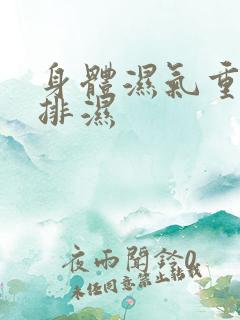 身體濕氣重
排濕
夜雨聞鈴0
未任同意禁止轉載